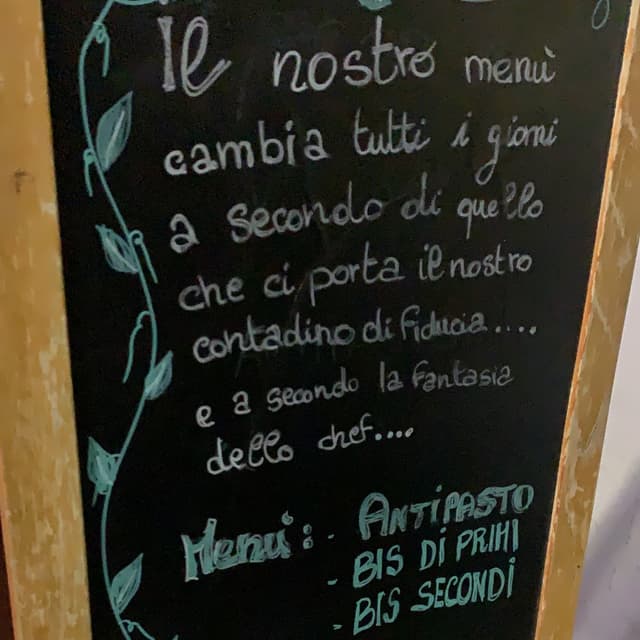 Il nostro menù
cambia tutti i giorni
a secondo di quello
che ci porta il nostro
contadino di fiducia....
e a secondo la fantasia
dello chef....
Menù: - ANTIPASTO
- BIS DI PRIMI
- BIS SECONDI